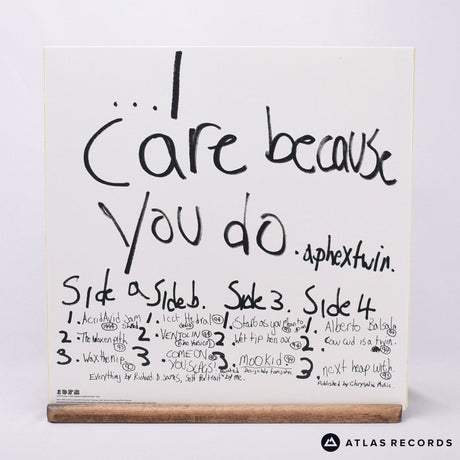 ...I
Care because
you do. aphextwin.
Side a Side b. Side 3. Side 4
1. Acrid Avid Jam Shred 1. Icct Hedral 1. Start as you Mean to 1. Alberto Balsalm
2. The Waxen pith 2. VENTOLIN 2. Wet tip hen ax 2. Cow cud is a twin.
3. Wax the nip 3 COME ON YOU SLAGS! 3. mookid 3 next heap with.
Everything by Richard D. James, Self Portrait by me. Published by Chrysalis Music.
ATLAS RECORDS